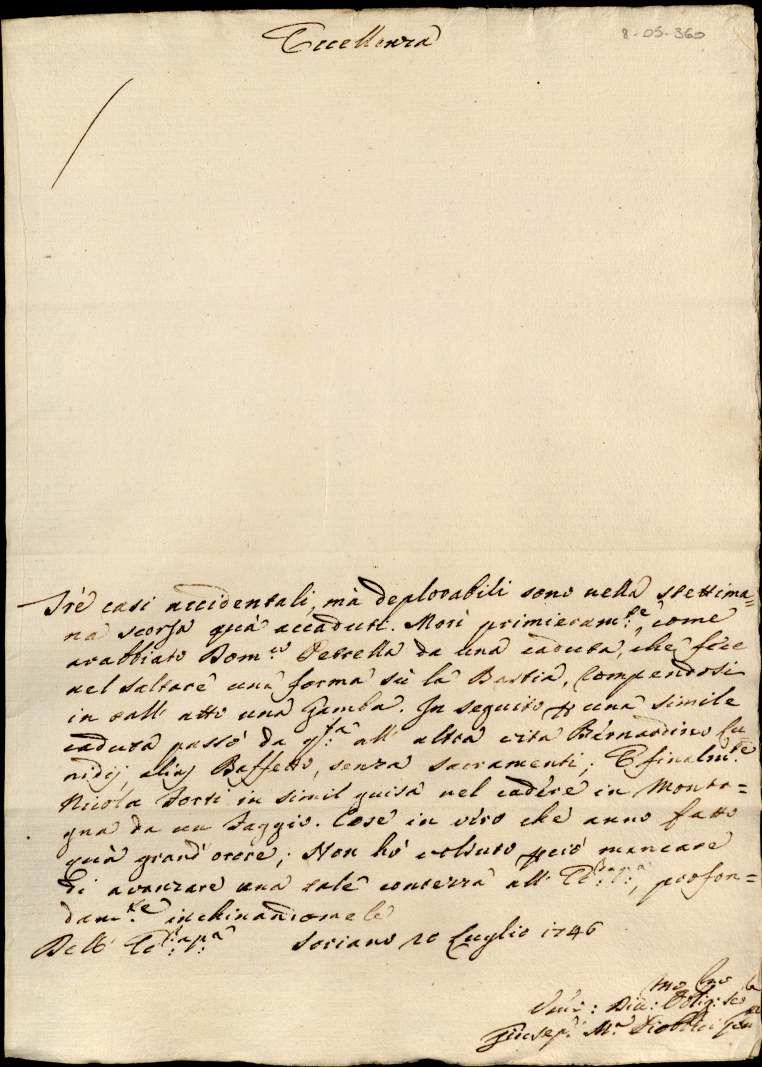 Eccellenza
8-05-360
Trè casi accidentali, mà deplorabili sono nella settima=
na scorsa quà accaduti. Morì primieram:te, come
arabbiato Dom:co Petrella da una caduta, che fece
nel saltare una forma sù la Bastia, Compendosi
in tall' atto una Gamba. In seguito p una simile
caduta passò da q:sta all' altra vita Bernardino Cu
ridij, alias Baffetto, senza sacramenti; E finalm:te
Nicola Forti in simil guisa nel cadere in Monta=
gna da un Faggio. Cose in vero che anno fatto
quà grand' orore; Non hò voluto però mancare
di avanzare una tale contezza all' , profon=
dam:te inchinandomele
Dell' Soriano 20 Luglio 1746
Giusep: M:a